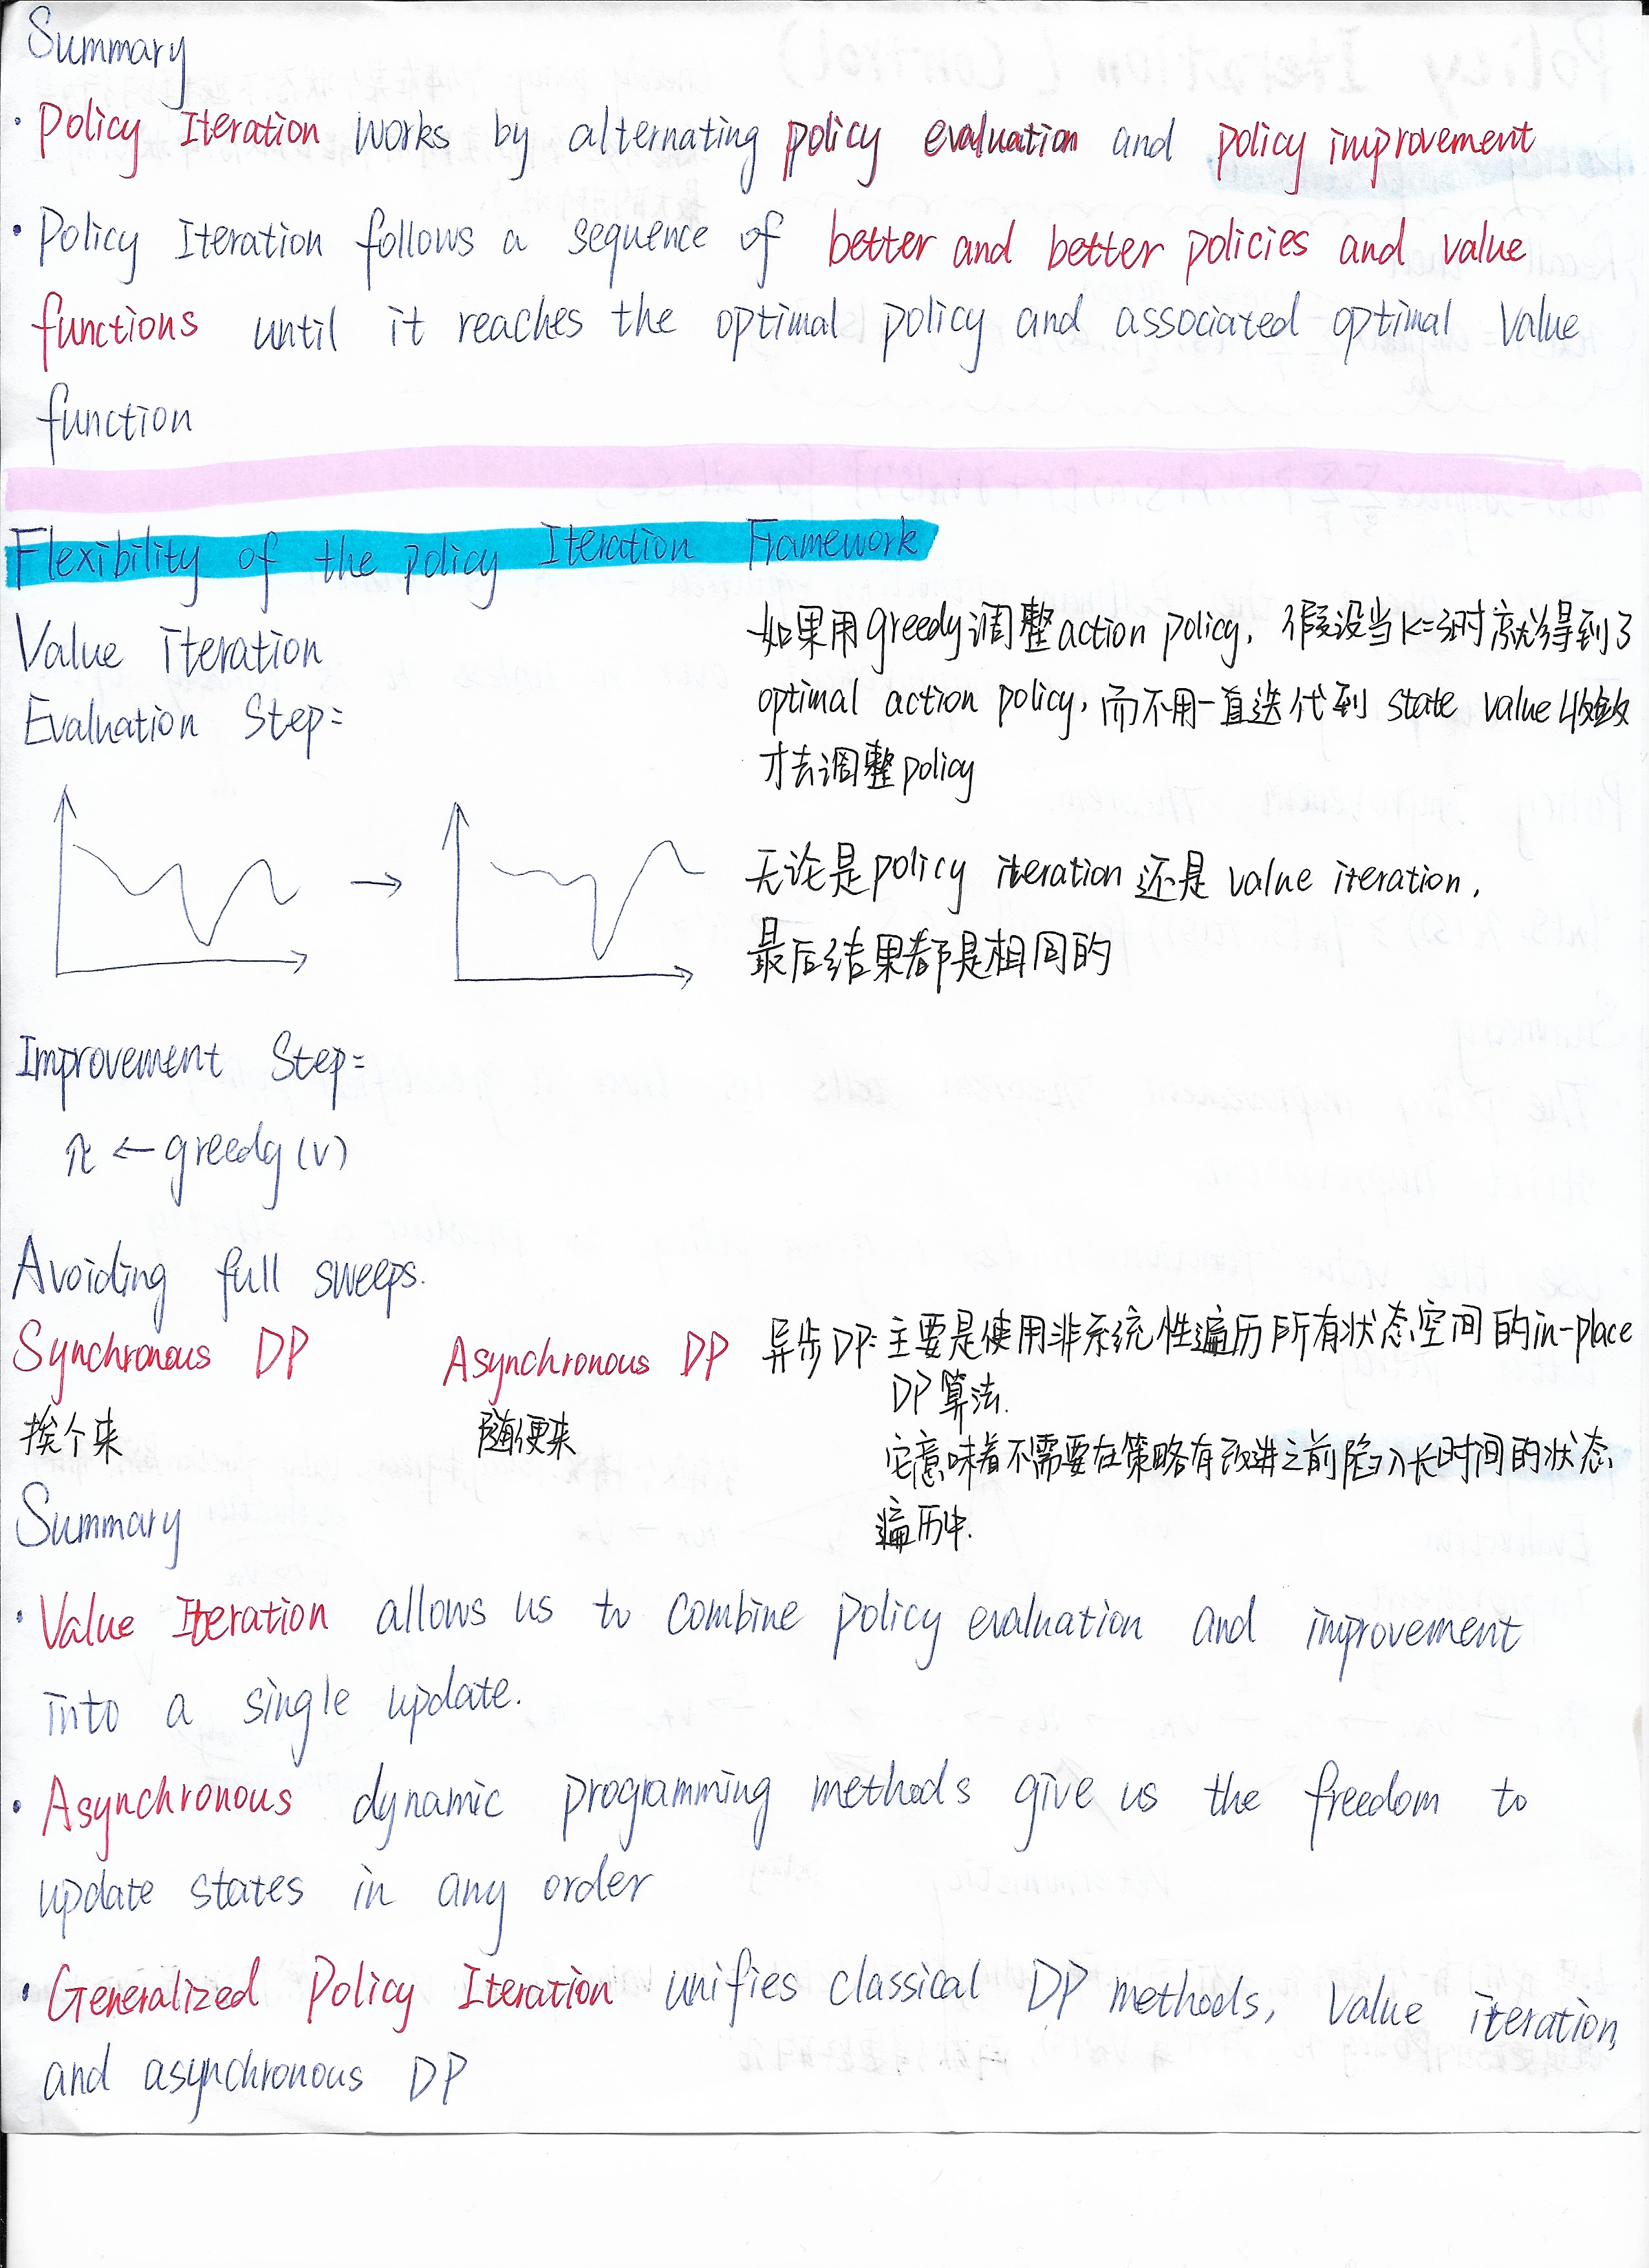 Summary
· Policy Iteration works by alternating policy evaluation and policy improvement
· Policy Iteration follows a sequence of better and better policies and value
functions until it reaches the optimal policy and associated optimal value
function
Flexibility of the policy Iteration Framework
Value iteration
Evaluation Step:
如果用greedy调整action policy, 假设当K=3时就得到了
optimal action policy, 而不用一直迭代到 state value收敛
才去调整policy
无论是policy iteration还是value iteration,
最后结果都是相同的
Improvement Step:
π ← greedy(v)
Avoiding full sweeps.
Synchronous DP
挨个来
Asynchronous DP
随便来
异步DP: 主要是使用非系统性遍历所有状态空间的in-place
DP算法.
它意味着不需要在策略有改进之前陷入长时间的状态
遍历中.
Summary
· Value Iteration allows us to combine policy evaluation and improvement
into a single update.
· Asynchronous dynamic programming methods give us the freedom to
update states in any order
· Generalized Policy Iteration unifies classical DP methods, value iteration,
and asynchronous DP